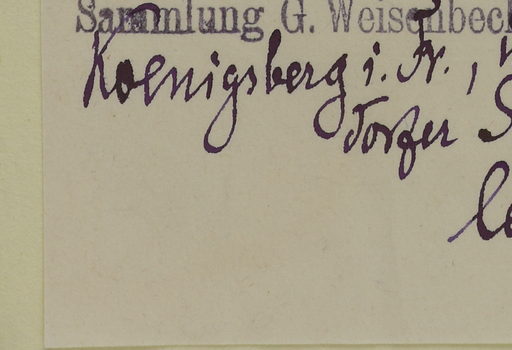 Sammlung G. Weisenbeck
Koenigsberg i. Fr.,
dorfer